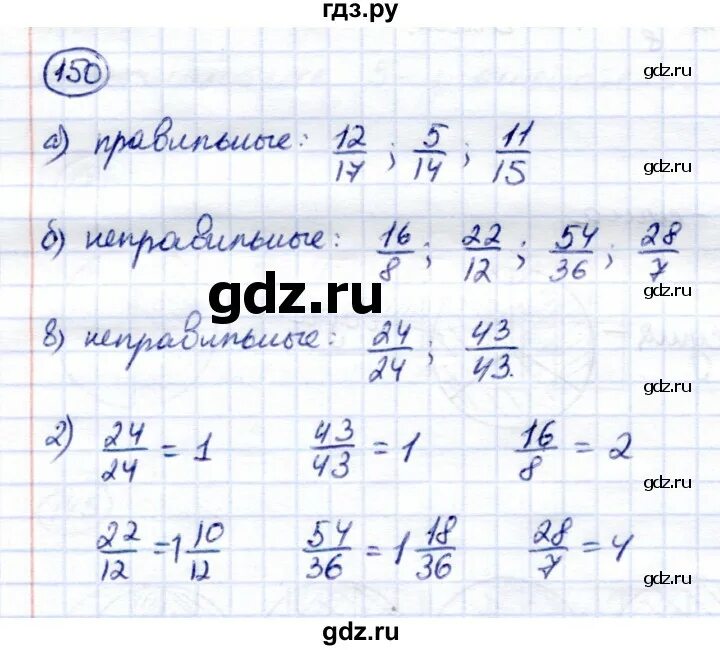 гдз.ру
150
gdz.ru
а) правильные: 12/17; 5/14; 11/15
gdz.ru
б) неправильные: 16/8; 22/12; 54/36; 28/7
gdz.ru
gdz.ru
в) неправильные: 24/24; 43/43.
gdz.ru
г) 24/24 = 1 43/43 = 1 16/8 = 2
gdz.ru
22/12 = 1 10/12 54/36 = 1 18/36 28/7 = 4
gdz.ru
gdz.ru